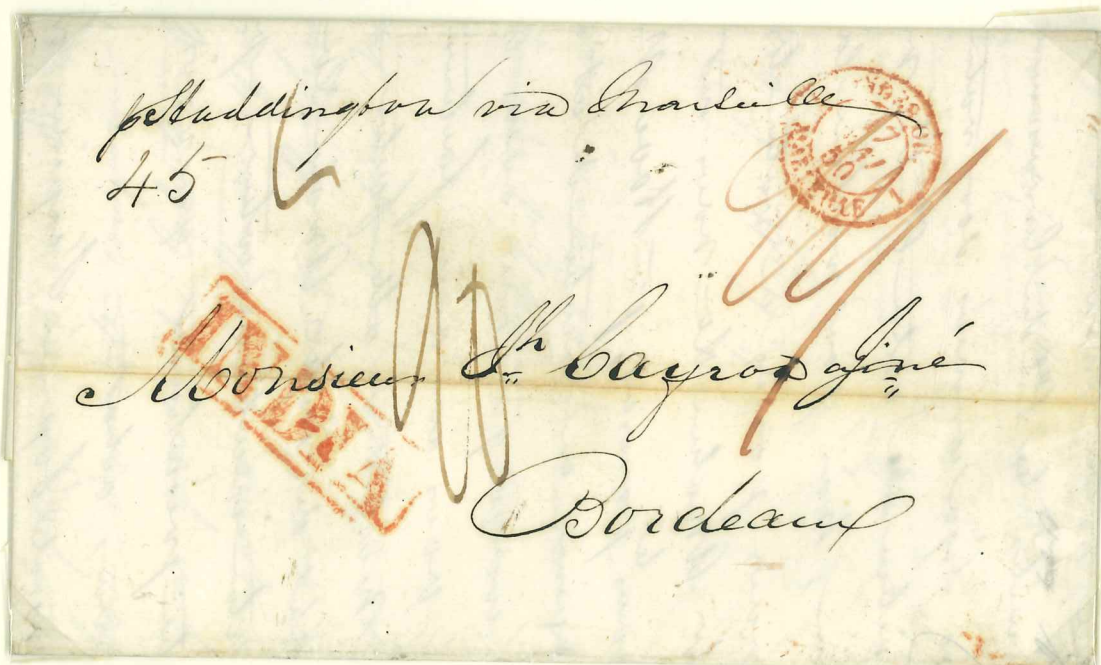 pr Haddington via Marseille
45
INDIA
Monsieur Jh Cayrou aîné
Bordeaux